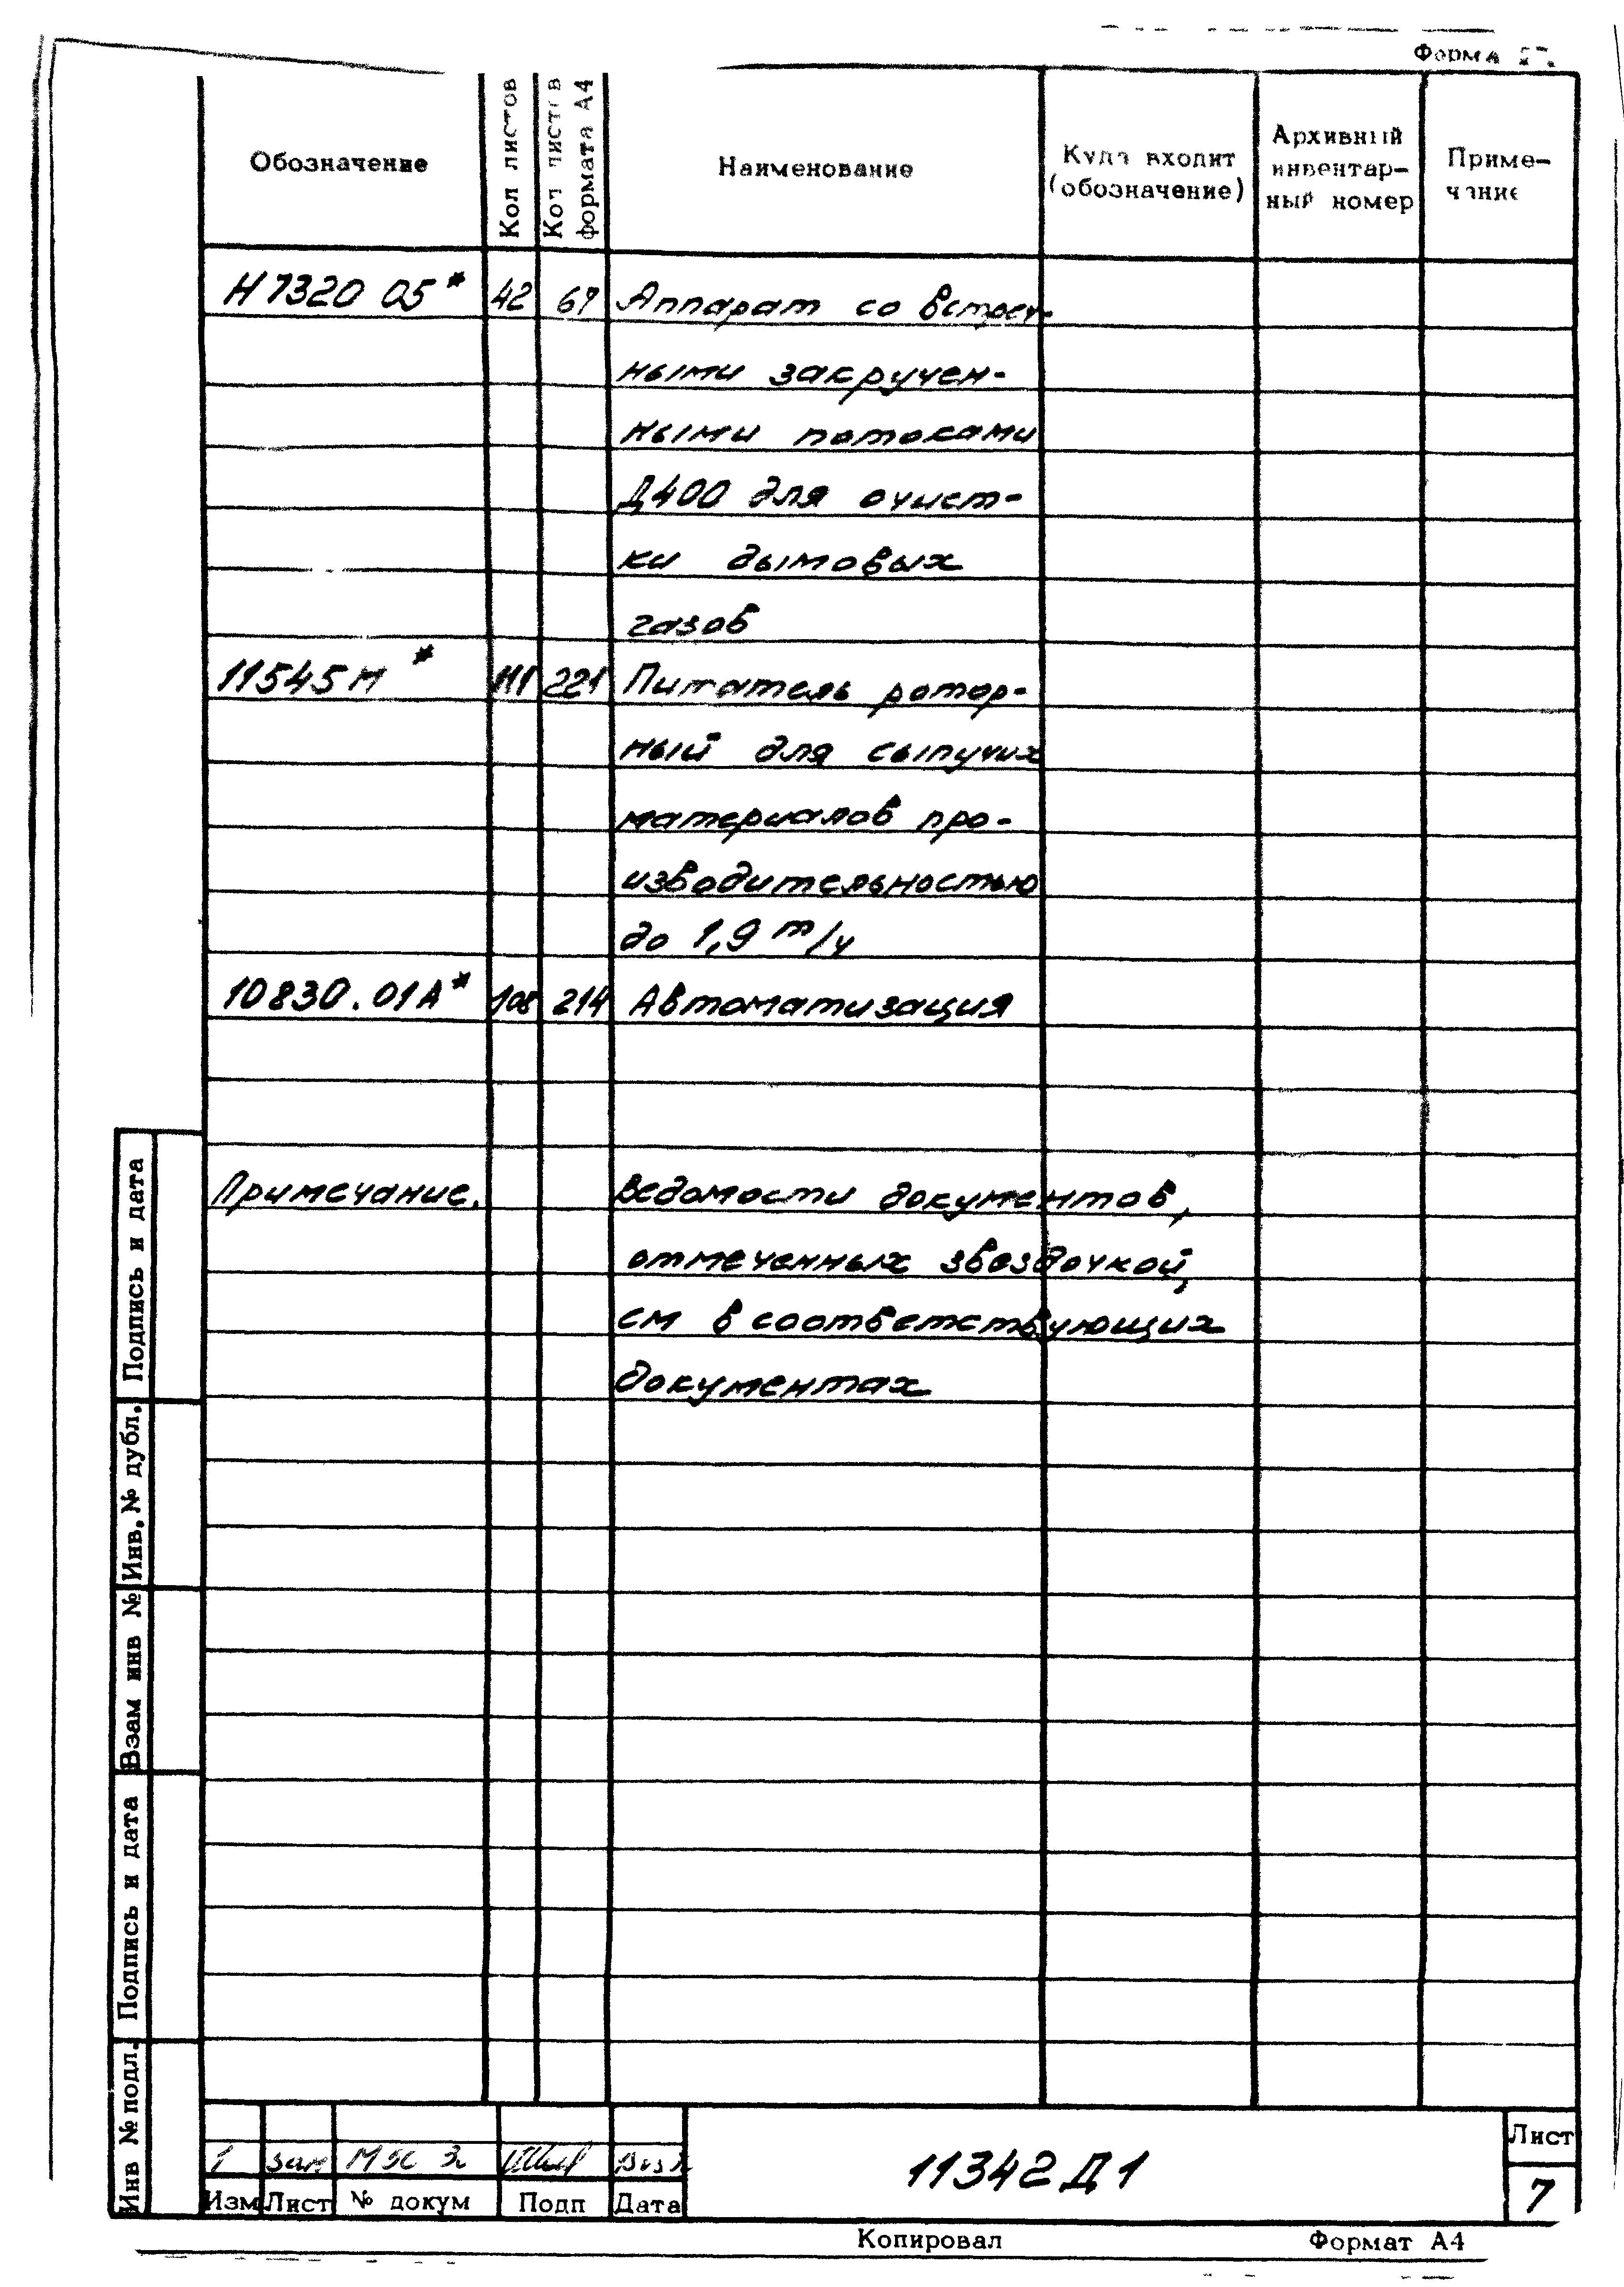 Форма
Обозначение
Кол листов
Кол листов
формата А4
Наименование
Куда входит
(обозначение)
Архивный
инвентар-
ный номер
Приме-
чание
Н7320 05* 42 67 Аппарат со встреч-
ными закручен-
ными потоками
Д400 для очист-
ки дымовых
газов
11545М * 111 221 Питатель ротор-
ный для сыпучих
материалов про-
изводительностью
до 1,9 т/ч
10830.01А* 108 214 Автоматизация
Примечание. Ведомости документов,
отмеченных звездочкой,
см в соответствующих
документах
Подпись и дата
Инв. № дубл.
Взам инв №
Подпись и дата
Инв № подл.
1 зам
Изм Лист № докум Подп Дата
11342 Д1
Лист
7
Копировал Формат А4